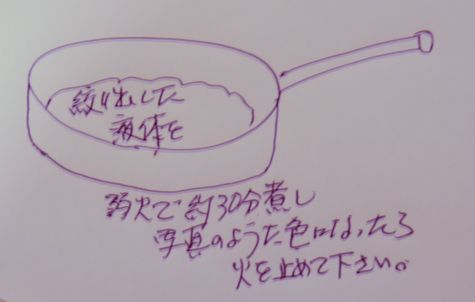 絞り出した
液体を
弱火で約30分煮し
写真のような色になったら
火を止めて下さい。